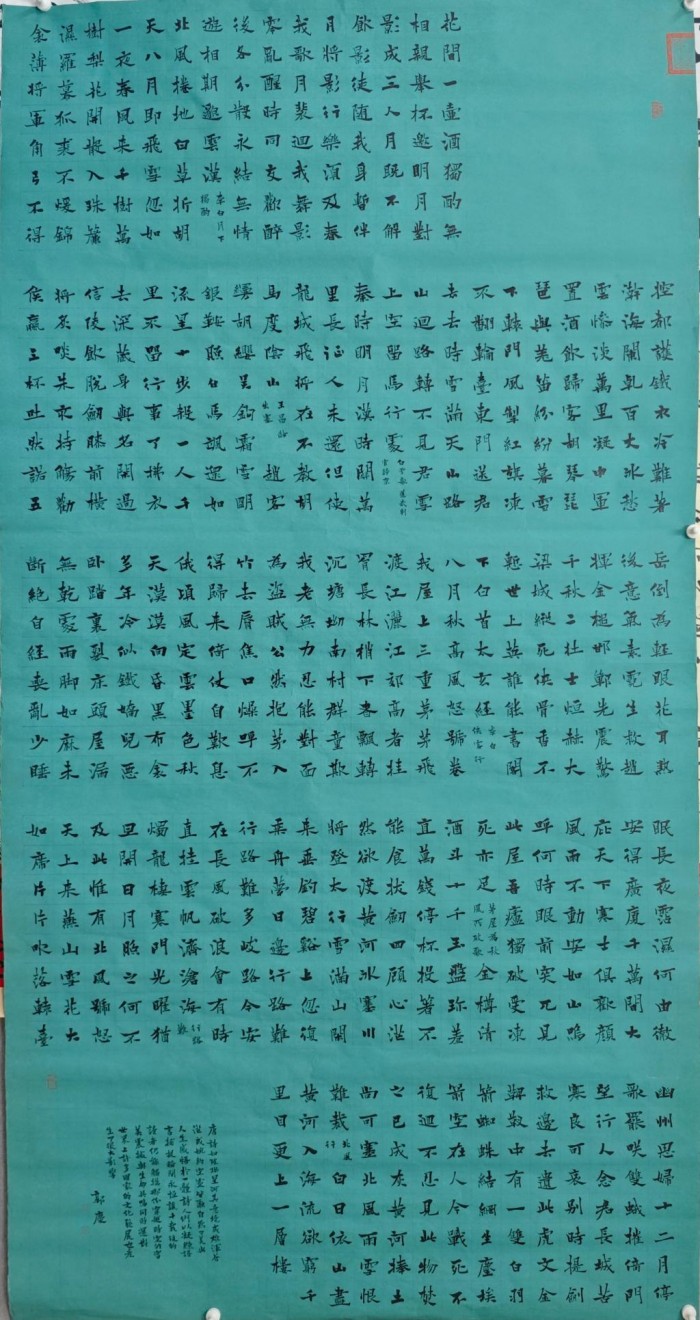 花間一壺酒獨酌無
相親舉杯邀明月對
影成三人月既不解
飲影徒隨我身暫伴
月將影行樂須及春
我歌月裴迴我舞影
零亂醒時同交歡醉
後各分散永結無情
遊相期邈雲漢 李白月下獨酌
北風捲地白草折胡
天八月即飛雪忽如
一夜春風来千樹萬
樹梨花開散入珠簾
濕羅幕狐裘不煖錦
衾薄將軍角弓不得
控都護鐵衣冷難著
瀚海闌乾百丈冰愁
雲慘淡萬里凝中軍
置酒飲歸客胡琴琵
琶與羌笛紛紛暮雪
下轅門風掣紅旗凍
不翻輪臺東門送君
去去時雪滿天山路
山迴路轉不見君雪
上空留馬行處 白雪歌送武判官歸京
秦時明月漢時關萬
里長征人未還但使
龍城飛將在不教胡
馬度陰山 王昌齡出塞 趙客
縵胡纓吳鉤霜雪明
銀鞍照白馬颯遝如
流星十步殺一人千
里不留行事了拂衣
去深藏身與名閑過
信陵飲脫劍膝前橫
將炙啖朱亥持觴勸
侯嬴三杯吐然諾五
岳倒為輕眼花耳熱
後意氣素霓生救趙
揮金槌邯鄲先震驚
千秋二壯士烜赫大
梁城縱死俠骨香不
慙世上英誰能書閣
下白首太玄經 李白俠客行
八月秋高風怒號卷
我屋上三重茅茅飛
渡江灑江郊高者挂
罥長林梢下者飄轉
沉塘坳南村群童欺
我老無力忍能對面
為盜賊公然抱茅入
竹去唇焦口燥呼不
得歸来倚仗自歎息
俄頃風定雲墨色秋
天漠漠向昏黑布衾
多年冷似鐵嬌兒惡
卧踏裏裂床頭屋漏
無乾處雨脚如麻未
斷絕自經喪亂少睡
眠長夜霑濕何由徹
安得廣廈千萬間大
庇天下寒士俱歡顏
風雨不動安如山嗚
呼何時眼前突兀見
此屋吾廬獨破受凍
死亦足 茅屋為秋風所破歌 金樽清
酒斗十千玉盤珍羞
直萬錢停杯投箸不
能食拔劍四顧心茫
然欲渡黄河冰塞川
將登太行雪滿山閑
来垂釣碧谿上忽復
乘舟夢日邊行路難
行路難多岐路今安
在長風破浪會有時
直挂雲帆濟滄海 行路難
燭龍棲寒門光曜猶
旦開日月照之何不
及此惟有北風號怒
天上来燕山雪花大
如席片片吹落軒臺
幽州思婦十二月停
歌罷笑雙蛾摧倚門
望行人念君長城苦
寒良可哀別時提劍
救邊去遺此虎文金
鞞靫中有一雙白羽
箭蜘蛛結網生塵埃
箭空在人今戰死不
復迴不忍見此物焚
之已成灰黄河捧土
尚可塞北風雨雪恨
難裁 北風行 白日依山盡
黄河入海流欲窮千
里目更上一層樓